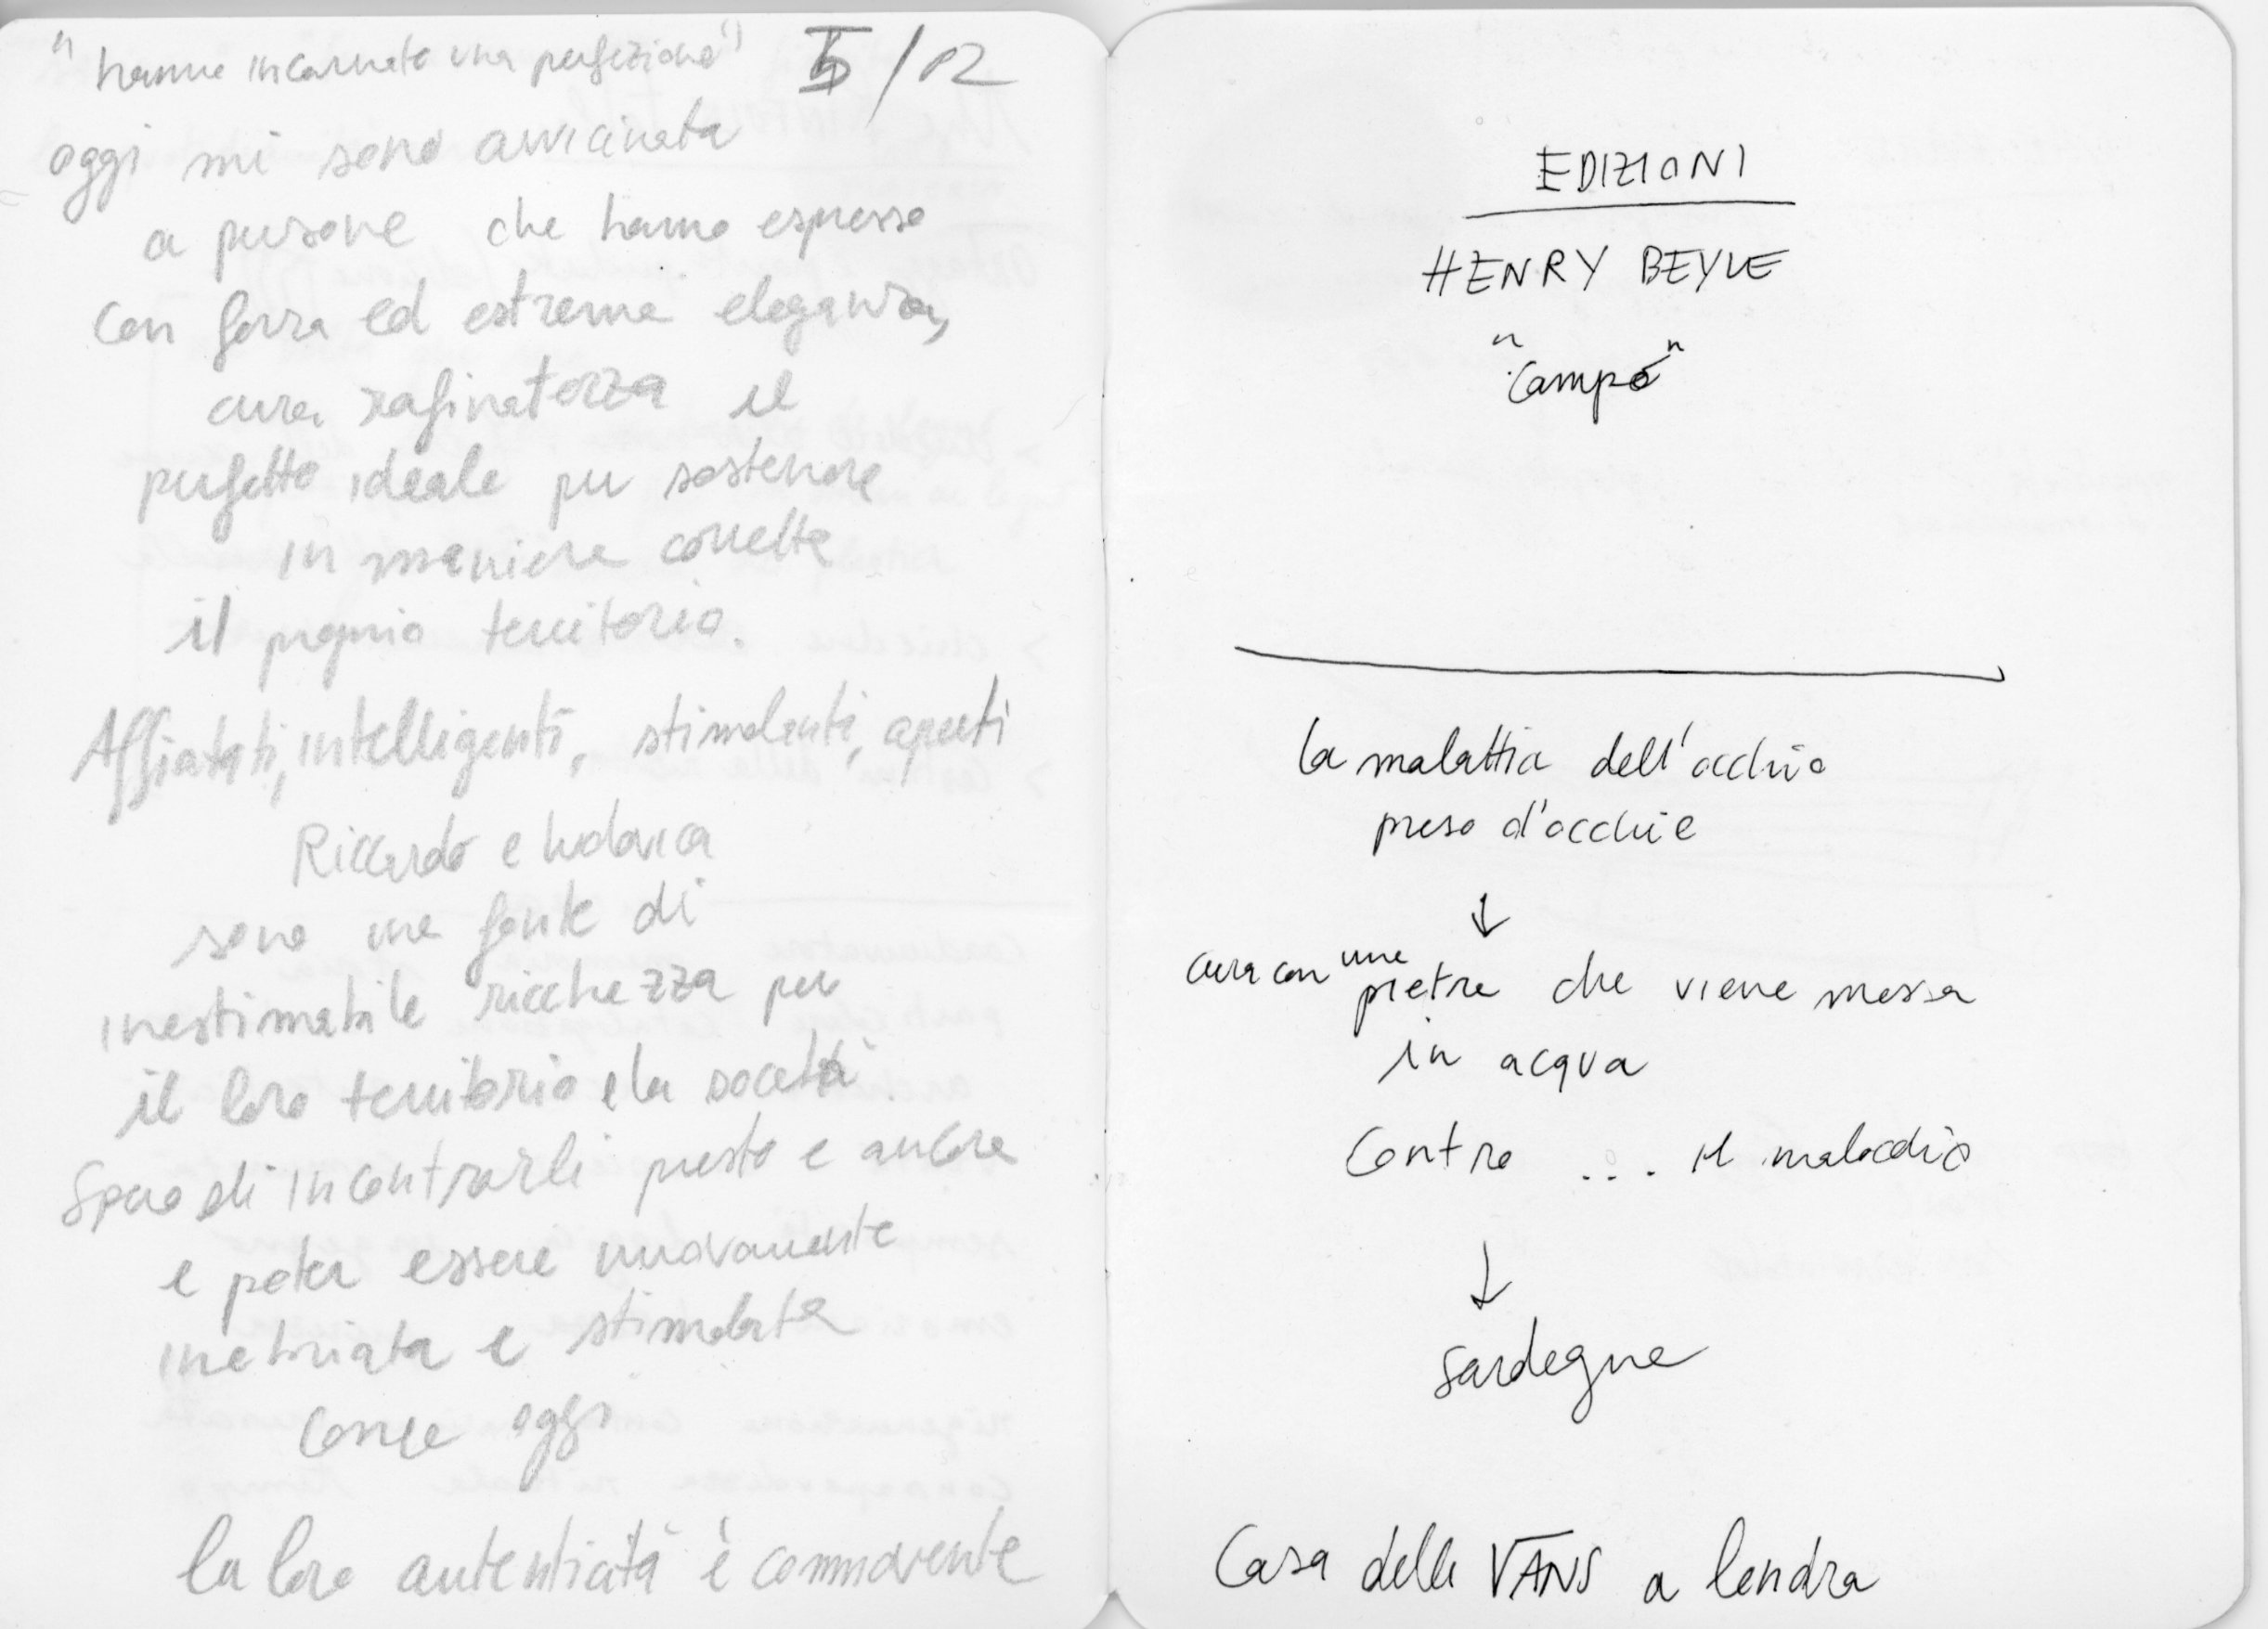 "hanno incarnato una perfezione" 5/12
oggi mi sono avvicinata
a persone che hanno espresso
con forza ed estrema eleganza,
cura rafinatezza il
perfetto ideale per sostenere
in maniera corretta
il proprio territorio.
Affiatati, intelligenti, stimolanti, aperti
Riccardo e Ludovica
sono una fonte di
inestimabile ricchezza per
il loro territorio e la società
Spero di incontrarli presto e ancora
e poter essere nuovamente
inebriata e stimolata
come oggi
la loro autenticità è commovente
EDIZIONI
HENRY BEYLE
"Campo"
la malattia dell'occhio
preso d'occhio
↓
cura con una pietra che viene messa
in acqua
Contro ... il malocchio
↓
Sardegna
Casa della VANS a Londra